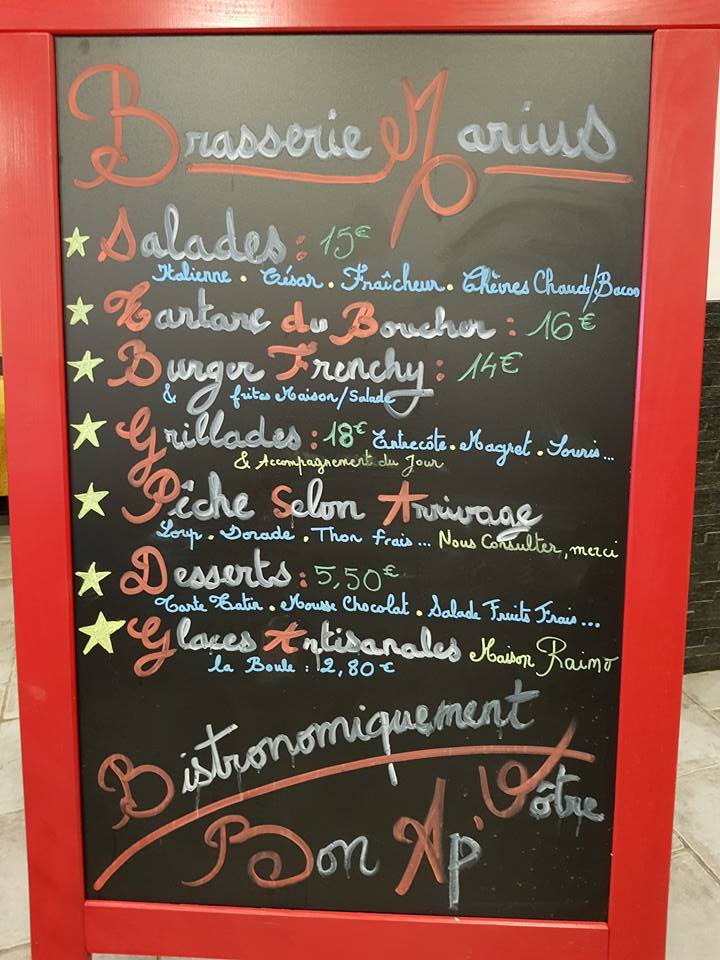 Brasserie Marius
Salades : 15€
Italienne . César . Fraîcheur . Chèvres Chauds/Bacon
Tartare du Boucher : 16€
Burger Frenchy : 14€
& frites Maison/Salade
Grillades : 18€ Entrecôte . Magret . Souris...
& Accompagnement du Jour
Pêche Selon Arrivage
Loup . Dorade . Thon frais... Nous Consulter, merci
Desserts : 5,50€
Tarte Tatin . Mousse Chocolat . Salade Fruits Frais...
Glaces Artisanales Maison Raimo
la Boule : 2,80€
Bistronomiquement
Vôtre
Bon Ap'